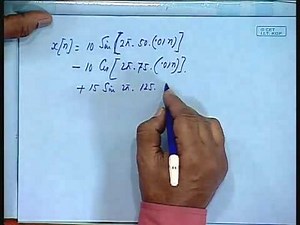 x[n] = 10 Sin [2π. 50. (.01n)]
- 10 Cos [2π. 75. (.01n)].
+ 15 Sin 2π. 125.
© CET
I.I.T. KGP